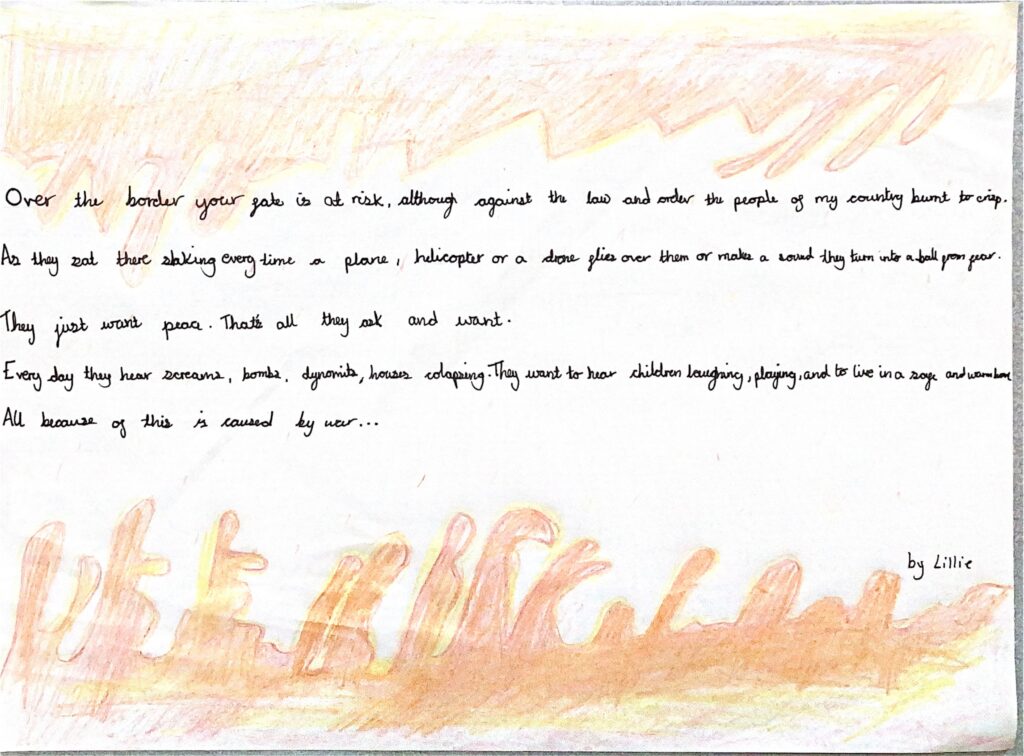 Over the border your fate is at risk, although against the law and order the people of my country burnt to crisp.
As they sat there shaking every time a plane, helicopter or a drone flies over them or makes a sound they turn into a ball from fear.
They just want peace. That's all they ask and want.
Every day they hear screams, bombs, dynomits, houses colapsing. They want to hear children laughing, playing, and to live in a safe and warm home
All because of this is caused by war...
by Lillie